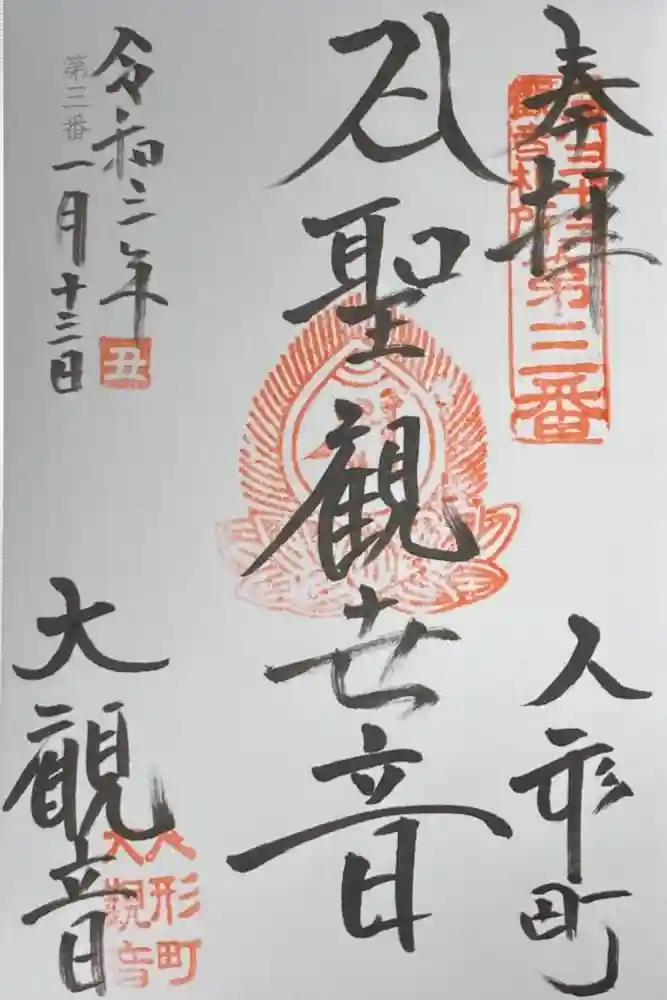 奉拝
人形町
聖観世音
令和三年
丑
一月十三日
第三番
大観音
第三番
人形町
大観音